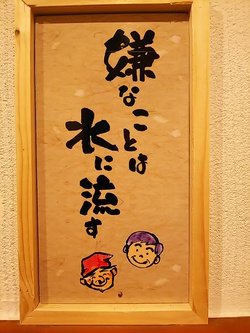 嫌なことは
水に流す